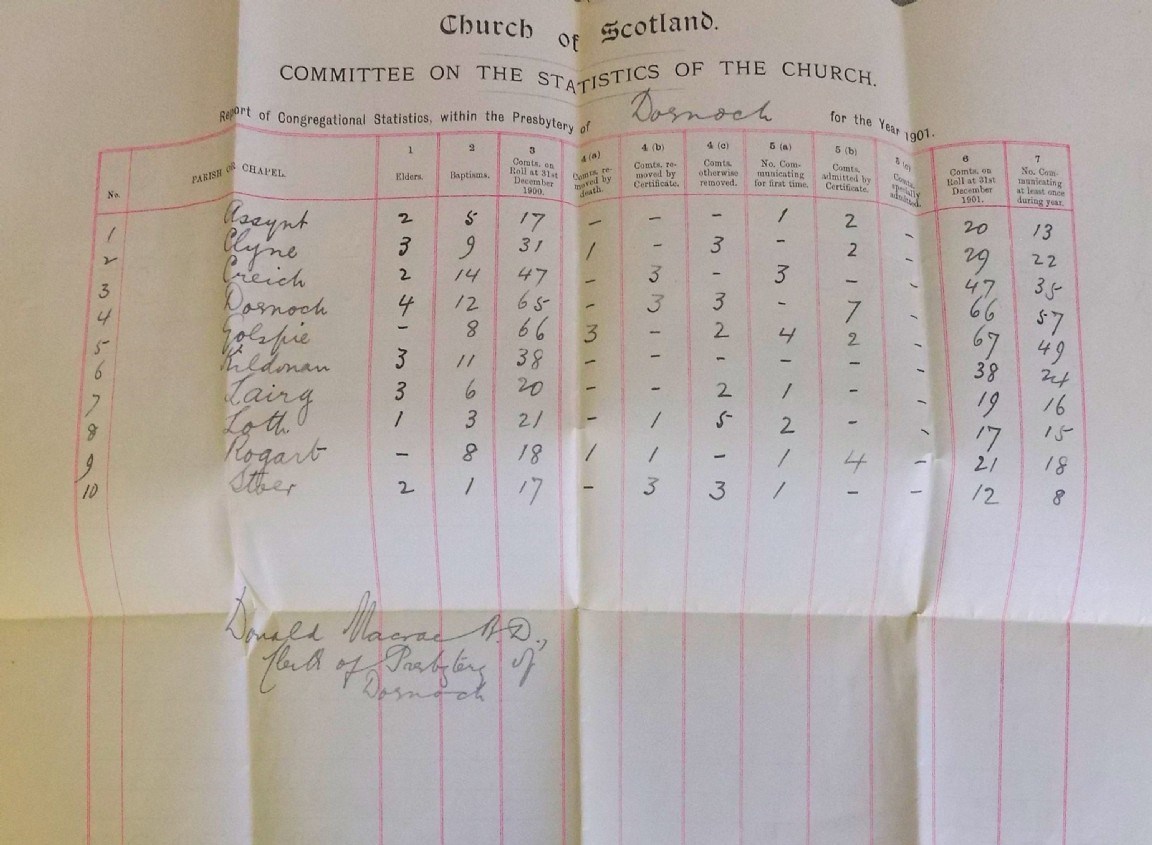 Church of Scotland.
COMMITTEE ON THE STATISTICS OF THE CHURCH.
Report of Congregational Statistics, within the Presbytery of Dornoch for the Year 1901.
No. PARISH OR CHAPEL. 1 Elders. 2 Baptisms. 3 Comts. on Roll at 31st December 1900. 4 (a) Comts. removed by death. 4 (b) Comts. removed by Certificate. 4 (c) Comts. otherwise removed. 5 (a) No. Communicating for first time. 5 (b) Comts. admitted by Certificate. 5 (c) Comts. specially admitted. 6 Comts. on Roll at 31st December 1901. 7 No. Communicating at least once during year.
1 Assynt 2 5 17 – – – 1 2 – 20 13
2 Clyne 3 9 31 1 – 3 – 2 – 29 22
3 Creich 2 14 47 – 3 – 3 – – 47 35
4 Dornoch 4 12 65 – 3 3 – 7 – 66 57
5 Golspie – 8 66 3 – 2 4 2 – 67 49
6 Kildonan 3 11 38 – – – – – – 38 24
7 Lairg 3 6 20 – – 2 1 – – 19 16
8 Loth 1 3 21 – 1 5 2 – – 17 15
9 Rogart – 8 18 1 1 – 1 4 – 21 18
10 Stoer 2 1 17 – 3 3 1 – – 12 8
Donald Macrae B.D.,
Clerk of Presbytery of
Dornoch